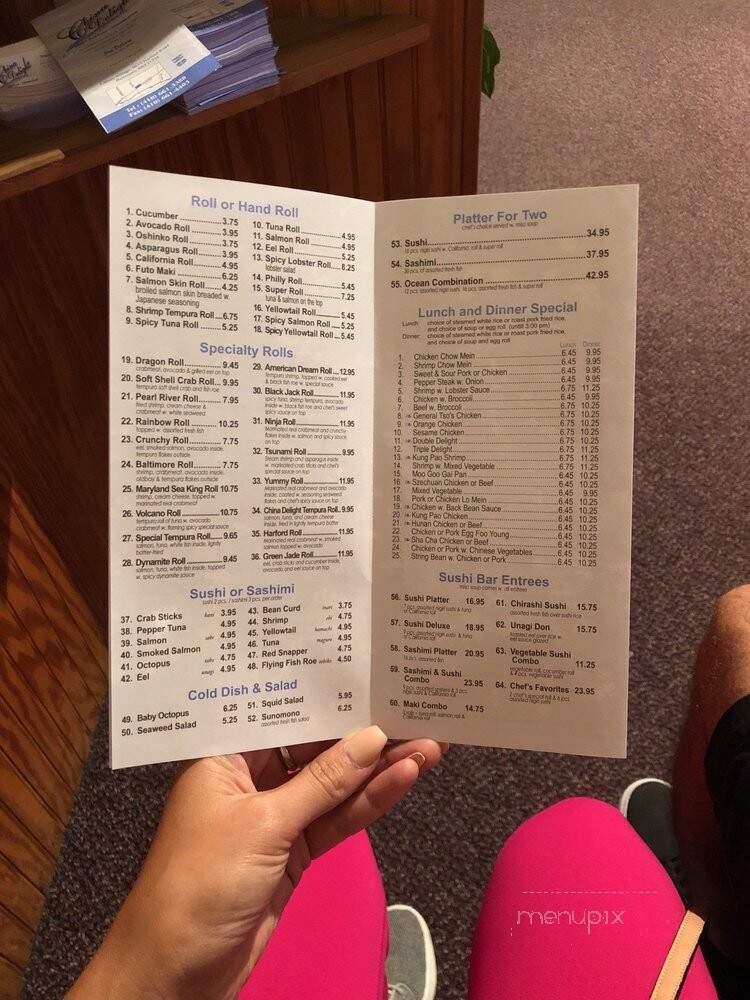 China Delight
Tel : (410) 661-3388
Roll or Hand Roll
1. Cucumber 3.75
2. Avocado Roll 3.95
3. Oshinko Roll 3.75
4. Asparagus Roll 3.95
5. California Roll 4.95
6. Futo Maki 6.25
7. Salmon Skin Roll 4.25
broiled salmon skin breaded w.
Japanese seasoning
8. Shrimp Tempura Roll 6.75
9. Spicy Tuna Roll 5.25
10. Tuna Roll 4.95
11. Salmon Roll 4.95
12. Eel Roll 5.25
13. Spicy Lobster Roll 8.25
lobster salad
14. Philly Roll 5.45
15. Super Roll 7.25
tuna & salmon on the top
16. Yellowtail Roll 5.45
17. Spicy Salmon Roll 5.25
18. Spicy Yellowtail Roll 5.45
Specialty Rolls
19. Dragon Roll 9.45
crabmeat, avocado & grilled eel on top
20. Soft Shell Crab Roll 9.95
tempura soft shell crab and fish roe
21. Pearl River Roll 7.95
fried shrimp, cream cheese &
crabmeat w. white seaweed
22. Rainbow Roll 10.25
topped w. assorted fresh fish
23. Crunchy Roll 7.75
eel, smoked salmon, avocado inside,
tempura flakes outside
24. Baltimore Roll 7.75
shrimp, crabmeat, avocado inside,
oldbay & tempura flakes outside
25. Maryland Sea King Roll 10.75
shrimp, cream cheese, topped w.
marinated real crabmeat
26. Volcano Roll 10.75
tempura roll of tuna w. avocado
crabmeat w. flaming spicy special sauce
27. Special Tempura Roll 9.65
salmon, tuna, white fish inside, lightly
batter-fried
28. Dynamite Roll 9.45
salmon, tuna, white fish inside, topped
w. spicy dynamite sauce
29. American Dream Roll 12.95
tempura shrimp, topped w. cooked eel
& black fish roe w. special sauce
30. Black Jack Roll 11.95
spicy tuna, shrimp tempura, avocado
inside w. black fish roe and chef's sweet
spicy sauce on top
31. Ninja Roll 11.95
marinated real crabmeat and crunchy
flakes inside w. salmon and spicy sauce
on top
32. Tsunami Roll 9.95
steam shrimp and asparagus inside
w. marinated crab sticks and chef's
special sauce on top
33. Yummy Roll 11.95
marinated real crabmeat and avocado
inside, coated w. seasoning seaweed
flakes and chef's spicy sauce on top
34. China Delight Tempura Roll 9.95
salmon, tuna, and cream cheese
inside, fried in lightly tempura batter
35. Harford Roll 11.95
marinated real crabmeat w. smoked
salmon topped w. avocado
36. Green Jade Roll 11.95
eel, crab sticks and cucumber inside,
avocado and eel sauce on top
Sushi or Sashimi
sushi 2 pcs. / sashimi 3 pcs. per order
37. Crab Sticks kani 3.95
38. Pepper Tuna 4.95
39. Salmon sake 4.95
40. Smoked Salmon 4.95
41. Octopus tako 4.75
42. Eel unagi 4.95
43. Bean Curd inari 3.75
44. Shrimp ebi 4.75
45. Yellowtail hamachi 4.95
46. Tuna maguro 4.95
47. Red Snapper 4.75
48. Flying Fish Roe tobiko 4.50
Cold Dish & Salad
49. Baby Octopus 6.25
50. Seaweed Salad 5.25
51. Squid Salad 5.95
52. Sunomono 6.25
assorted fresh fish salad
Platter For Two
chef's choice served w. miso soup
53. Sushi 34.95
54. Sashimi 37.95
30 pcs. of assorted fresh fish
55. Ocean Combination 42.95
Lunch and Dinner Special
Lunch: choice of steamed white rice or roast pork fried rice,
and choice of soup or egg roll (until 3:00 pm)
Dinner: choice of steamed white rice or roast pork fried rice,
and choice of soup and egg roll
Lunch Dinner
1. Chicken Chow Mein 6.45 9.95
2. Shrimp Chow Mein 6.45 9.95
3. Sweet & Sour Pork or Chicken 6.45 9.95
4. Pepper Steak w. Onion 6.45 9.95
5. Shrimp w. Lobster Sauce 6.75 11.25
6. Chicken w. Broccoli 6.45 9.95
7. Beef w. Broccoli 6.75 10.25
8. General Tso's Chicken 6.75 10.25
9. Orange Chicken 6.75 10.25
10. Sesame Chicken 6.75 10.25
11. Double Delight 6.75 10.25
12. Triple Delight 6.75 11.25
13. Kung Pao Shrimp 6.75 11.25
14. Shrimp w. Mixed Vegetable 6.75 11.25
15. Moo Goo Gai Pan 6.45 10.25
16. Szechuan Chicken or Beef 6.45 10.25
17. Mixed Vegetable 6.45 9.95
18. Pork or Chicken Lo Mein 6.45 10.25
19. Chicken w. Back Bean Sauce 6.45 10.25
20. Kung Pao Chicken 6.45 10.25
21. Hunan Chicken or Beef 6.45 10.25
22. Chicken or Pork Egg Foo Young 6.45 10.25
23. Sha Cha Chicken or Beef 6.45 10.25
24. Chicken or Pork w. Chinese Vegetables 6.45 10.25
25. String Bean w. Chicken or Pork 6.45 10.25
Sushi Bar Entrees
miso soup comes w. all entrees
56. Sushi Platter 16.95
7 pcs. assorted nigiri sushi & tuna
or California roll
57. Sushi Deluxe 18.95
9 pcs. assorted nigiri sushi & tuna
or California roll
58. Sashimi Platter 20.95
59. Sashimi & Sushi
Combo 23.95
60. Maki Combo 14.75
California roll
61. Chirashi Sushi 15.75
assorted fresh fish over sushi rice
62. Unagi Don 15.75
roasted eel over rice w.
eel sauce glazed
63. Vegetable Sushi
Combo 11.25
vegetable roll, cucumber roll
& 4 pcs. vegetable sushi
64. Chef's Favorites 23.95
menupix